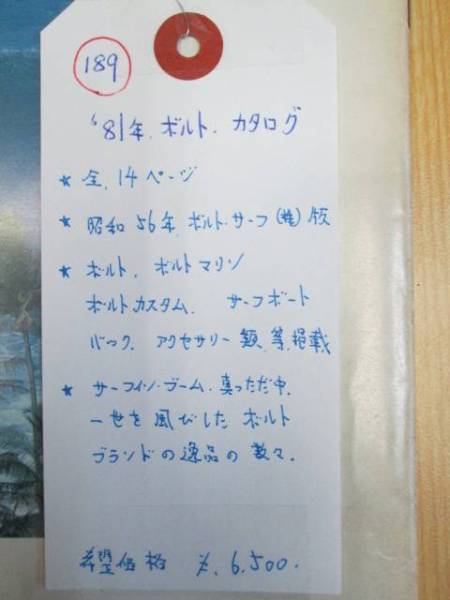 189
'81年.ボルト.カタログ
★ 全.14ページ
★ 昭和56年.ボルト.サーフ(株)版
★ ボルト.ボルトマリン
ボルトカスタム. サーフボート
バック.アクセサリー類.等.掲載
★ サーフィン.ブーム.真っただ中.
一世を風びした ボルト
ブランドの逸品の数々.
希望価格 ¥.6.500.